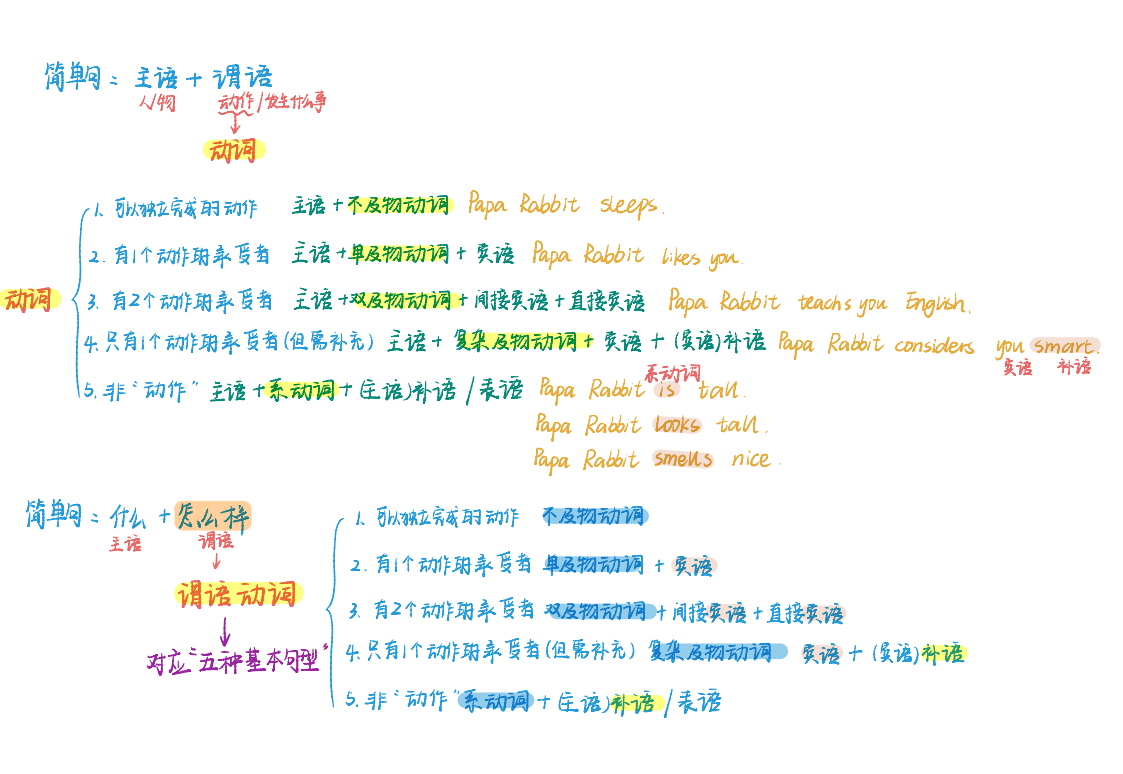 简单句 = 主语 + 谓语
人/物 动作/发生什么事
动词
动词
1. 可以独立完成的动作 主语+不及物动词 Papa Rabbit sleeps.
2. 有1个动作的承受者 主语+单及物动词+宾语 Papa Rabbit likes you.
3. 有2个动作的承受者 主语+双及物动词+间接宾语+直接宾语 Papa Rabbit teachs you English.
4. 只有1个动作的承受者(但需补充) 主语+复杂及物动词+宾语+(宾语)补语 Papa Rabbit considers you smart.
宾语 补语
系动词
5. 非“动作” 主语+系动词+(主语)补语/表语 Papa Rabbit is tall.
Papa Rabbit looks tall.
Papa Rabbit smells nice.
简单句 = 什么 + 怎么样
主语 谓语
谓语动词
对应“五种基本句型”
1. 可以独立完成的动作 不及物动词
2. 有1个动作的承受者 单及物动词 + 宾语
3. 有2个动作的承受者 双及物动词+间接宾语+直接宾语
4. 只有1个动作的承受者(但需补充) 复杂及物动词 宾语+(宾语)补语
5. 非“动作”系动词+(主语)补语/表语